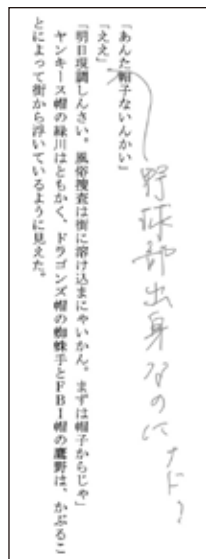 「あんた帽子ないんかい」
「ええ」
「明日現調しんさい。風俗捜査は街に溶け込まにゃいかん。まずは帽子からじゃ」
ヤンキース帽の緑川はともかく、ドラゴンズ帽の蜘蛛手とFBI帽の鷹野は、かぶるこ
とによって街から浮いているように見えた。
野球部出身なのにナド?